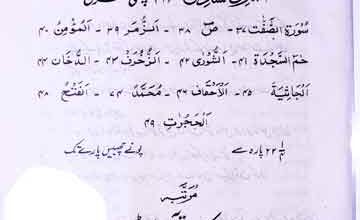 سُورَةِ الصّٰفّٰت ۳۷ - صٓ ۳۸ - اَلزُّمَر ۳۹ - اَلْمُؤْمِن ۴۰
حٰمٓ السَّجْدَة ۴۱ - اَلشُّوْرٰی ۴۲ - اَلزُّخْرُف ۴۳ - اَلدُّخَان ۴۴
اَلْجَاثِيَة ۴۵ - اَلْاَحْقَاف ۴۶ - مُحَمَّد ۴۷ - اَلْفَتْح ۴۸
اَلْحُجُرٰتِ ۴۹
۲۲ پارہ سے پونے چھبیس پارے تک
مرتبہ